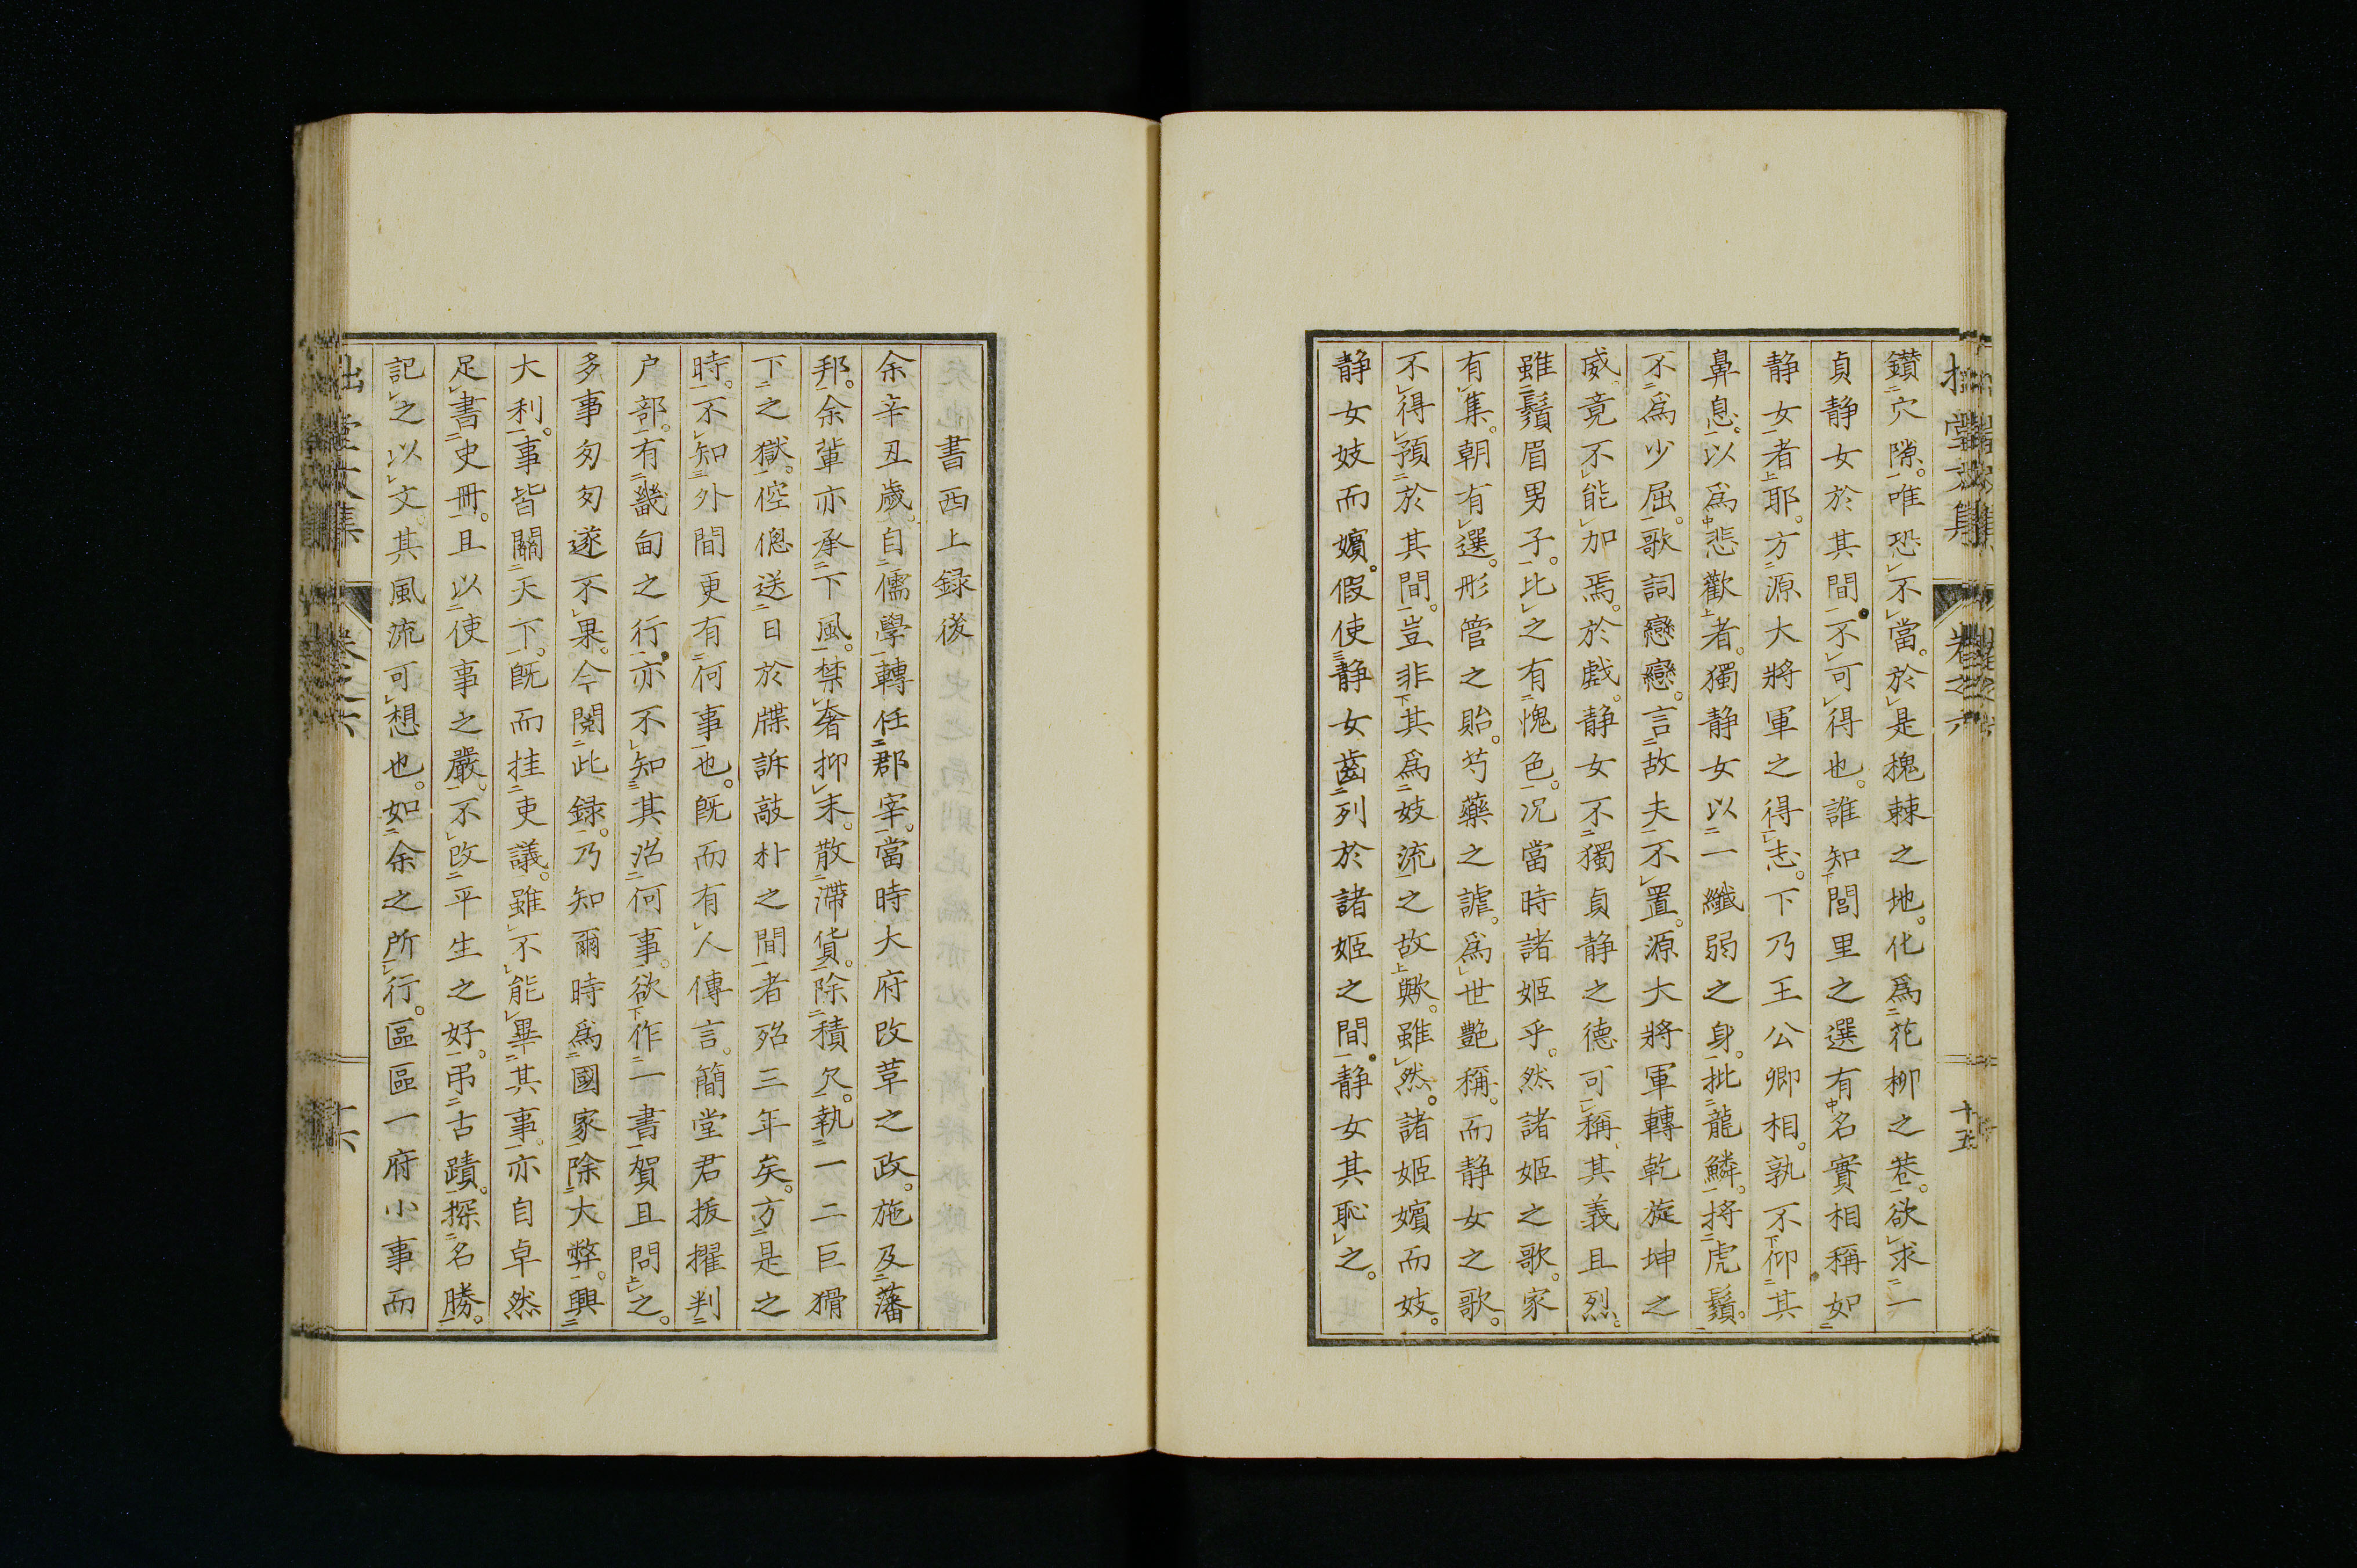 鑽穴隙。唯恐不當。於是槐棘之地。化爲花柳之巷。欲求一
貞静女於其間。不可得也。誰知閭里之選有名實相稱如
静女者耶。方源大將軍之得志。下乃王公卿相。孰不仰其
鼻息。以爲悲歡者。獨静女以一纖弱之身。批龍鱗。捋虎鬚。
不爲少屈。歌詞戀戀。言故夫不置。源大將軍轉乾旋坤之
威竟不能加焉。於戲。静女不獨貞静之德可稱、其義且烈。
雖鬚眉男子。比之有愧色。况當時諸姬乎。然諸姬之歌。家
有集。朝有選。形管之貽。芍藥之謔。爲世艷稱。而静女之歌。
不得預於其間。豈非其爲妓流之故歟。雖然。諸姬嬪而妓。
静女妓而嬪。假使静女齒列於諸姬之間。静女其恥之。
卷之六
十五
書西上録後
余辛丑歲。自儒學轉任郡宰。當時大府改革之政。施及藩
邦。余輩亦承下風。禁奢抑末。散滯貨。除積欠。執一二巨猾
下之獄。倥偬送日於牒訴敲朴之間者殆三年矣。方是之
時。不知外間更有何事也。既而有人傳言。簡堂君拔擢判
户部。有畿甸之行。亦不知其治何事。欲作一書賀且問之。
多事匆匆遂不果。今閲此録。乃知爾時爲國家除大弊。興
大利。事皆關天下。既而挂吏議。雖不能畢其事。亦自卓然
足書史冊。且以使事之嚴。不改平生之好。弔古蹟。探名勝。
記之以文。其風流可想也。如余之所行。區區一府小事而